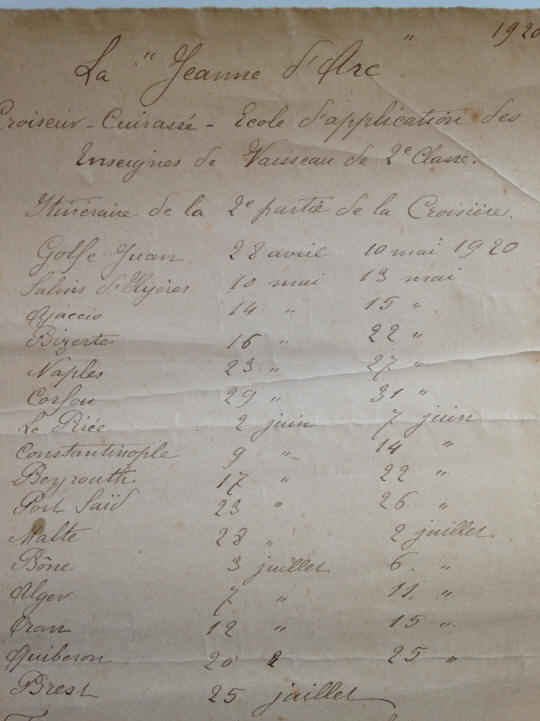 1920
La "Jeanne d'Arc"
Croiseur-Cuirassé - Ecole d'application des
Enseignes de Vaisseau de 2e Classe.
Itinéraire de la 2e partie de la Croisière.
Golfe Juan 28 avril 10 mai 1920
Salins d'Hyères 10 mai 13 mai
Ajaccio 14 " 15 "
Bizerte 16 " 22 "
Naples 23 " 27 "
Corfou 29 " 31 "
Le Pirée 2 juin 7 juin
Constantinople 9 " 14 "
Beyrouth 17 " 22 "
Port Saïd 23 " 26 "
Malte 28 " 2 juillet
Bône 3 juillet 6 "
Alger 7 " 11 "
Oran 12 " 15 "
Quiberon 20 " 25 "
Brest 25 juillet